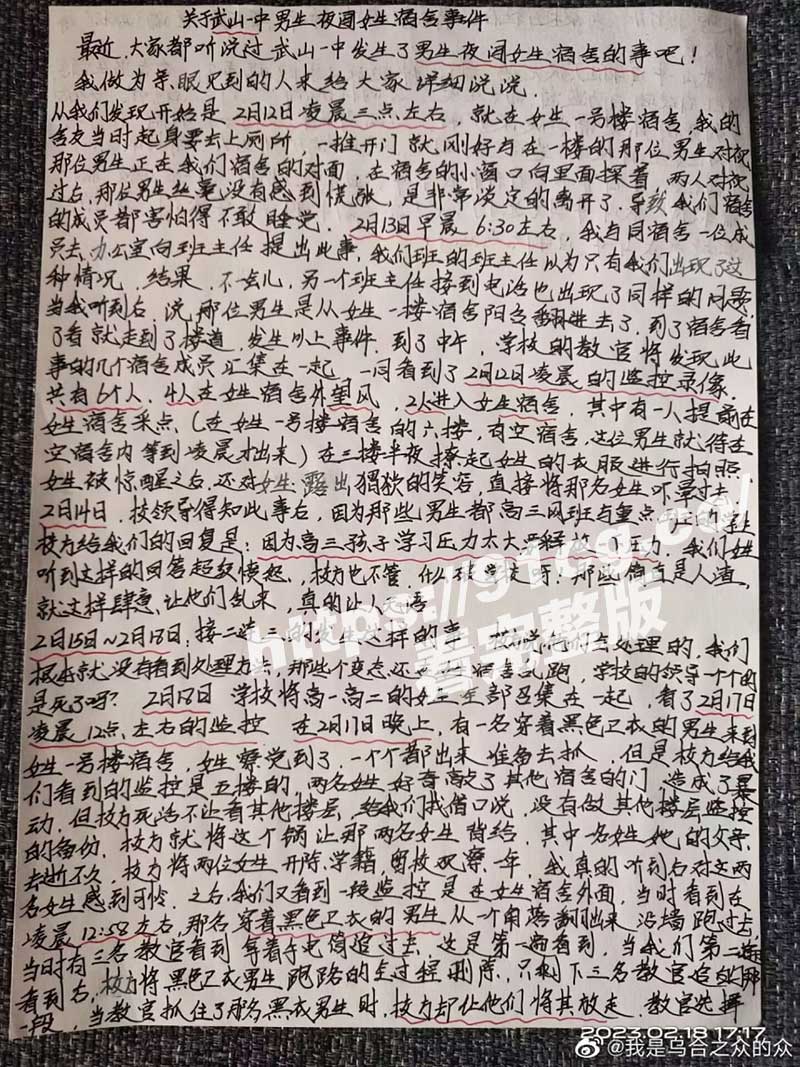 关于武山一中男生夜闯女生宿舍事件
最近大家都听说过武山一中发生了男生夜闯女生宿舍的事吧！
我做为亲眼见到的人来给大家详细说说.
从我们发现开始是2月12日凌晨三点左右，就在女生一号楼宿舍,我的
舍友当时起身要去上厕所，一推开门就刚好与在一楼的那位男生对视
那位男生正在我们宿舍的对面，在宿舍的小窗口向里面探着 两人对视
过后,那位男生丝毫没有感到慌张，是非常淡定的离开了.导致我们宿舍
的成员都害怕得不敢睡觉. 2月13日早晨6:30左右，我与同宿舍一位成
员去办公室向班主任提出此事，我们班的班主任以为只有我们出现了这
种情况，结果，不一会儿，另一个班主任接到电话也出现了同样的问题.
当我听到后，说那位男生是从女生一楼宿舍阳台翻进去了，到了宿舍看
了看就走到了楼道，发生以上事件.到了中午，学校的教官将发现此
事的几个宿舍成员汇集在一起，一同看到了2月12日凌晨的监控录像.
共有6个人，4人在女生宿舍外望风，2人进入女生宿舍，其中有一人提前在
女生宿舍采点（在女生一号楼宿舍的六楼，有空宿舍，这位男生就待在
空宿舍内等到凌晨才出来）在三楼半夜撩起女生的衣服进行拍照
女生被惊醒之后,还对女生露出猥欲的笑容，直接将那名女生吓晕过去
2月14日，校领导得知此事后，因为那些男生都高三网班与重点
校方给我们的回复是：因为高三孩子学习压力太大 压力，我们女生
听到这样的回答超级愤怒，校方也不管，什么 学校呀！那些简直是人渣，
就这样肆意让他们乱来，真的让人无语
2月15日~2月18日：接二连三的发生这样的事 校 处理的，我们
根本就没有看到处理方法，那些个变态还 宿舍乱跑，学校的领导一个个的
是死了吗？ 2月18日 学校将高一高二的女生全部召集在一起，看了2月17日
凌晨12点左右的监控 在2月17日晚上，有一名穿着黑色卫衣的男生来到
女生一号楼宿舍，女生察觉到了，一个个都出来准备去抓，但是校方给我
们看到的监控是五楼的，两名女生好奇敲了其他宿舍的门，造成了暴
动，但校方死活不让看其他楼层，给我们找借口说，没有做其他楼层监控
的备份，校方就将这个锅让那两名女生背给，其中一名女生她的父亲
去逝不久，校方将两位女生开除学籍 留校观察一年，我真的听到后对这两
名女生感到可怜，之后，我们又看到一段监控是在女生宿舍外面，当时看到在
凌晨12:58左右，那名穿着黑色卫衣的男生从一个角落翻出来沿墙跑过去，
当时有三名教官看到拿着手电筒追过去，这是第一遍看到，当我们第二遍
看到后，校方将黑色卫衣男生跑路的全过程删除，只剩下三名教官追的那
一段，当教官抓住了那名黑衣男生时，校方却让他们将其放走，教官选择
https://91cg.co/
看完整版
2023.02.18 17:17
@我是乌合之众的众